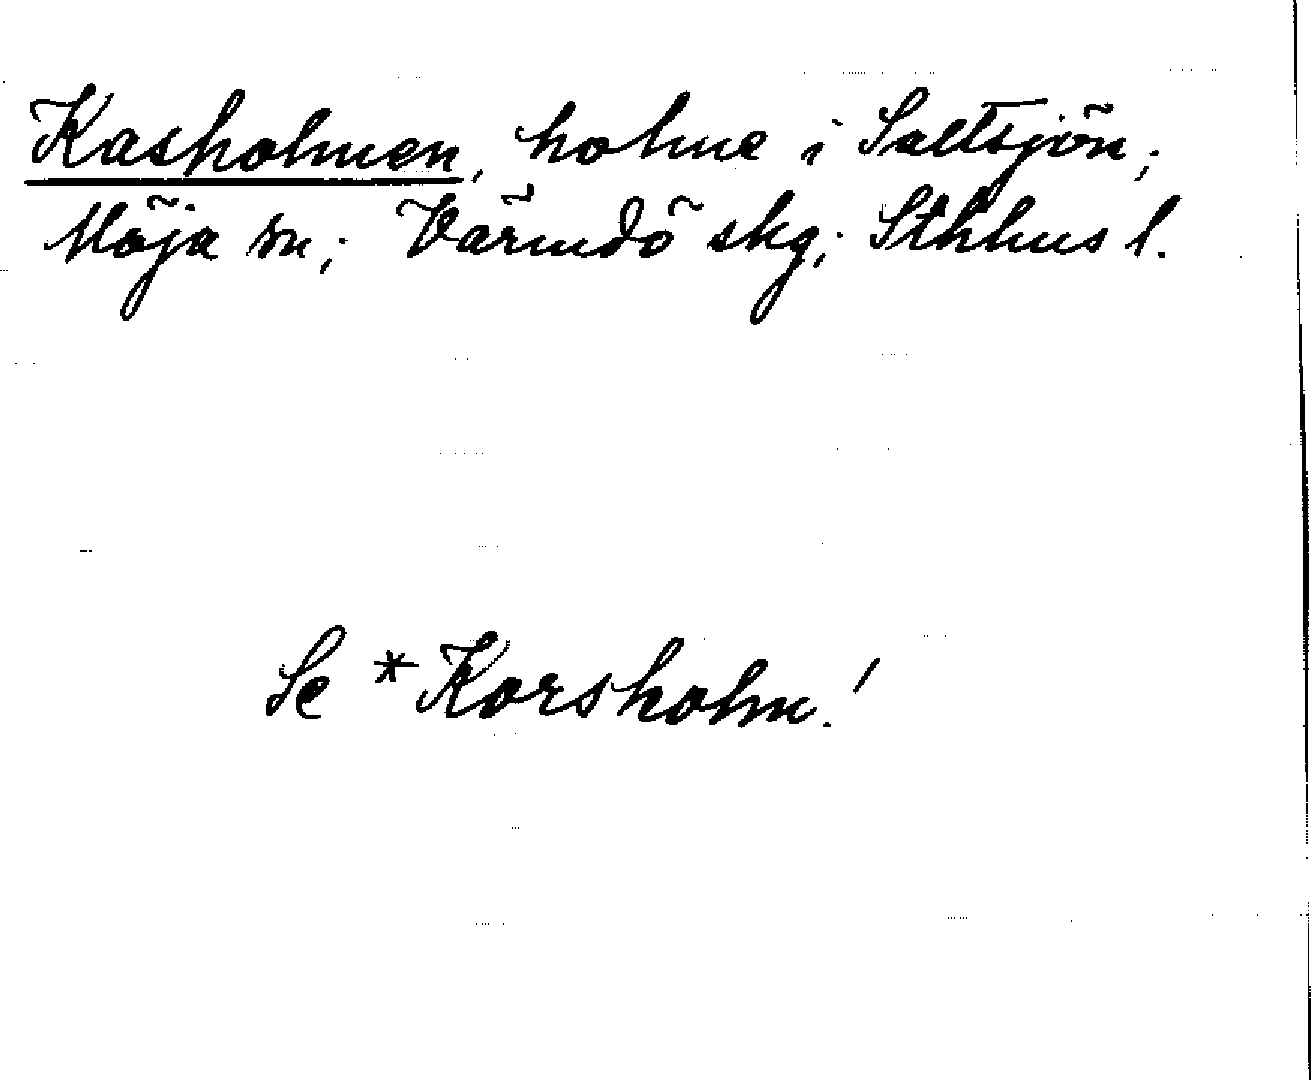 Kasholmen, holme i Saltsjön;
Möja sn; Värmdö skg; Sthlms l.
Se *Korsholm!